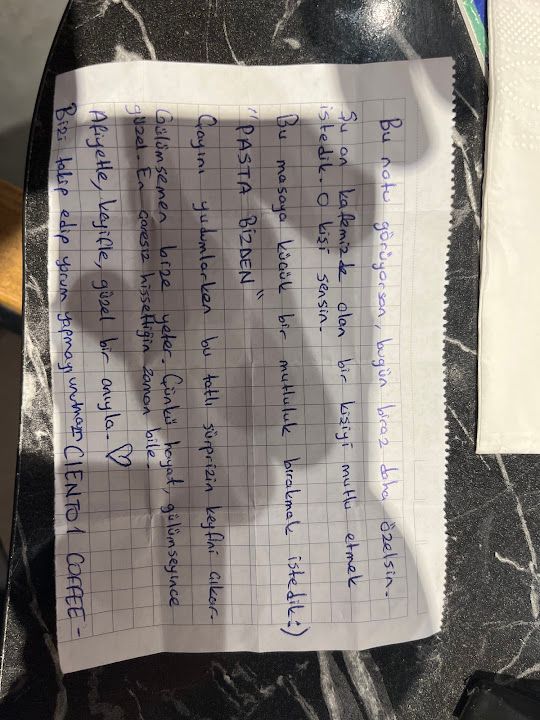 Bu notu görüyorsan, bugün biraz daha özelsin.
Şu an kafemizde olan bir kişiyi mutlu etmek
istedik. O kişi sensin.
Bu masaya küçük bir mutluluk bırakmak istedik :)
"PASTA BİZDEN"
Çayını yudumlarken bu tatlı sürprizin keyfini çıkar.
Gülümsemen bize yeter. Çünkü hayat, gülümseyince
güzel. En çaresiz hissettiğin zaman bile.
Afiyetle, keyifle, güzel bir anıyla. ♡
Bizi takip edip yorum yapmayı unutma CIENTO1 COFFEE-